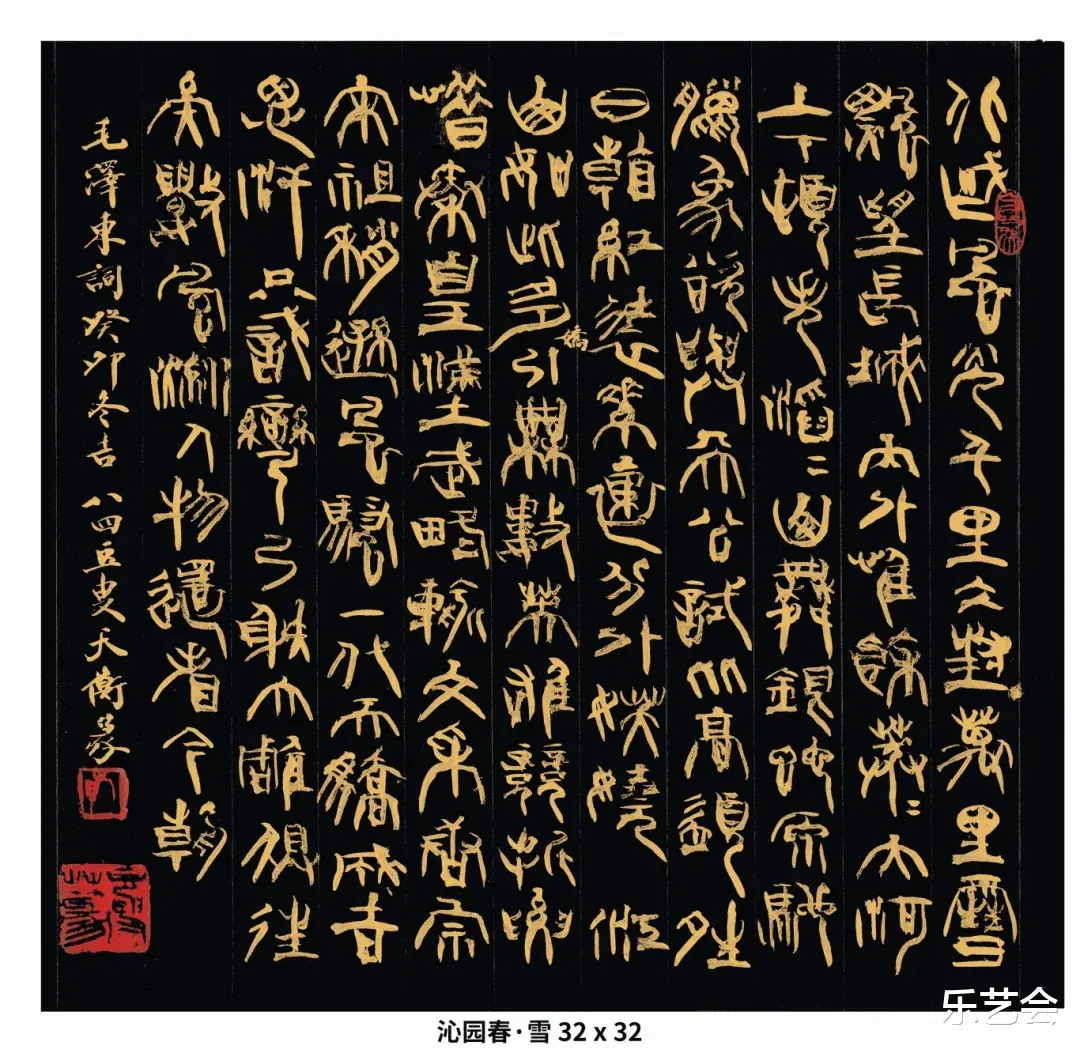 北國風光千里冰封萬里雪
飄望長城內外惟餘莽〻大河
上下頓失滔〻山舞銀蛇原馳
臘象欲與天公試比高須晴
日看紅裝素裹分外妖嬈江
山如此多嬌引無數英雄競折腰
惜秦皇漢武略輸文采唐宗
宋祖稍遜風騷一代天驕成吉
思汗只識彎弓射大雕俱往
矣數風流人物還看今朝
毛澤東詞癸卯冬吉 八四豆叟天衡篆
乐艺会
沁园春·雪 32 x 32